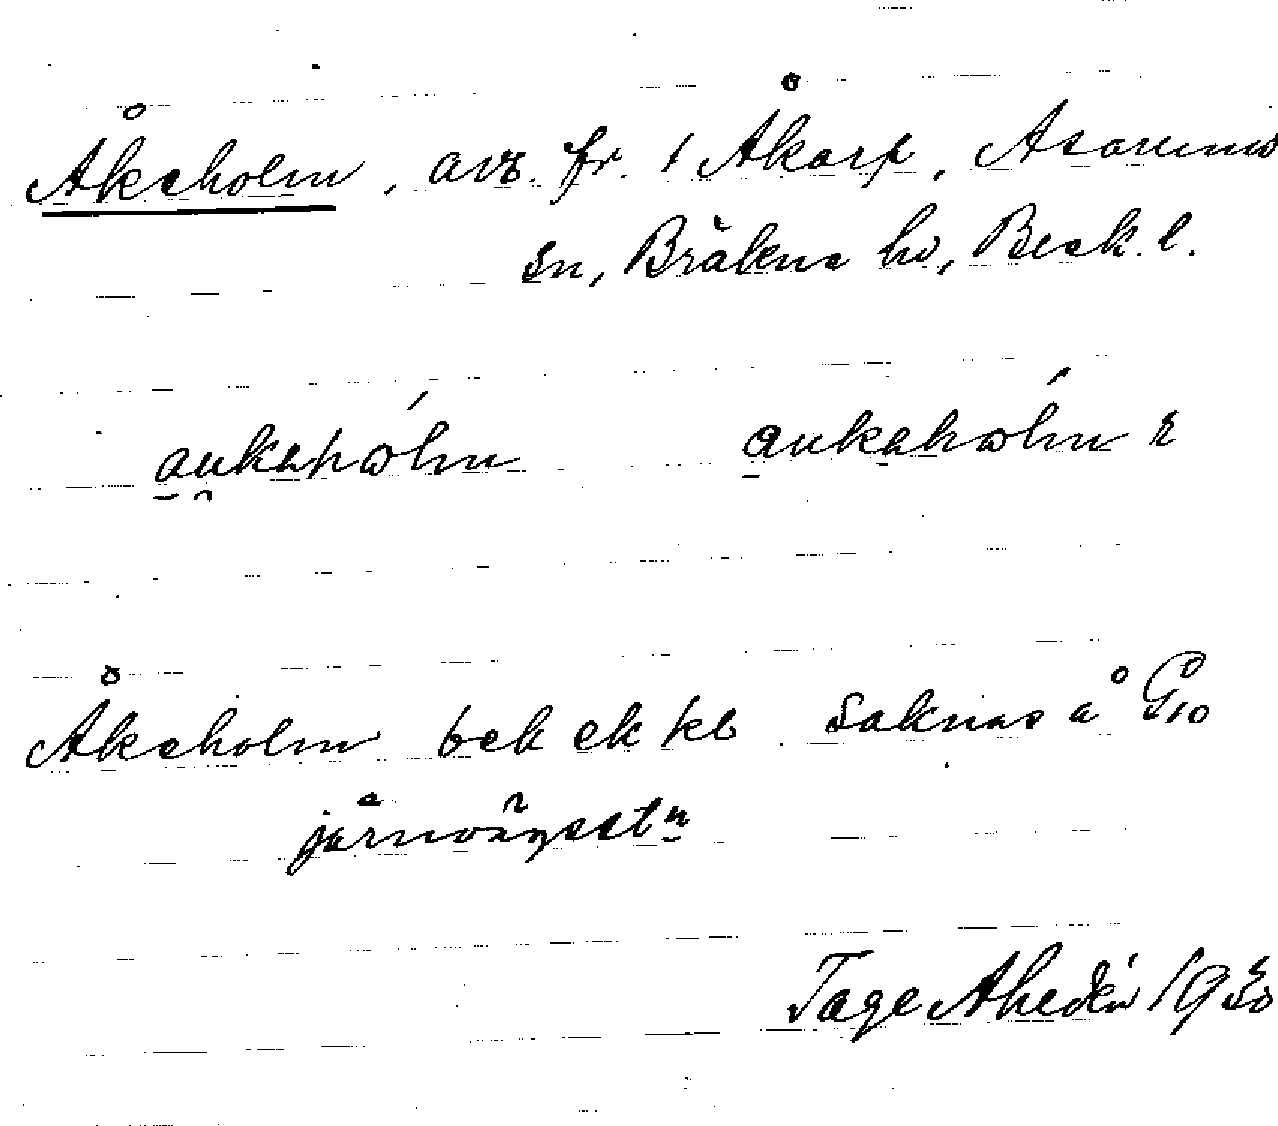 Åkeholm, avs. fr. 1 Åkarp, Asarums
sn, Bräkne hd, Blek. l.
aukahólm aukahólm r
Åkeholm bek ek kb saknas å G10
järnvägsstn
Tage Ahedén 1930